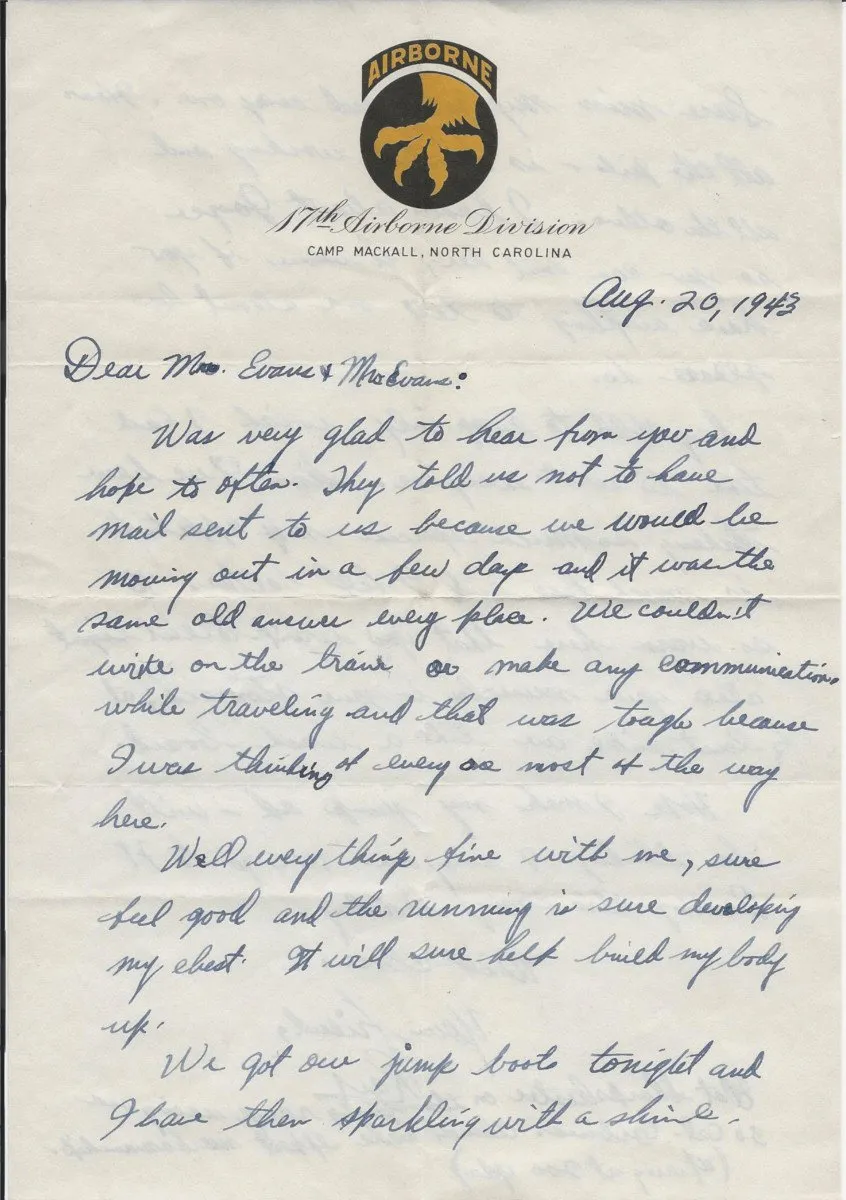 AIRBORNE
17th Airborne Division
CAMP MACKALL, NORTH CAROLINA
Aug. 20, 1943
Dear Mrs. Evans & Mr Evans:
Was very glad to hear from you and
hope to often. They told us not to have
mail sent to us because we would be
moving out in a few days and it was the
same old answer every place. We couldn't
write on the train or make any communications
while traveling and that was tough because
I was thinking of every one most of the way
here.
Well every thing fine with me, sure
feel good and the running is sure developing
my chest. It will sure help build my body
up.
We got our jump boots tonight and
I have them sparkling with a shine.